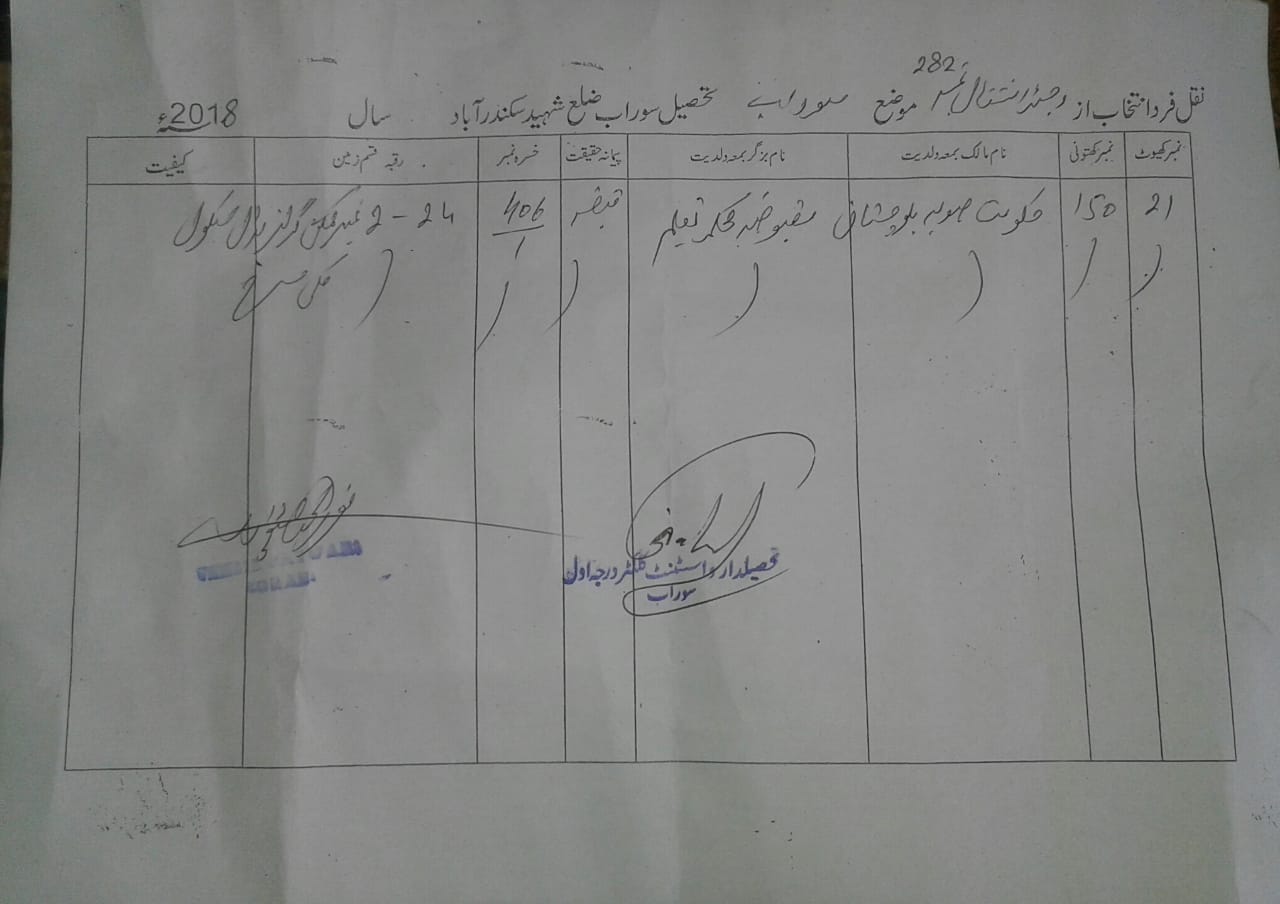 نقل فرد انتخاب از رجسٹر انتقال نمبر 282 موضع سوراب تحصیل سوراب ضلع شہید سکندر آباد سال 2018ء
نمبر کھیوٹ نمبر کھتونی نام مالک بمعہ ولدیت نام بزگر بمعہ ولدیت پیمانہ حقیقت خسرہ نمبر رقبہ قسم زمین کیفیت
21 150 حکومت صوبہ بلوچستان مقبوضہ محکمہ تعلیم قبضہ 406 24 - 2 گرلز مڈل سکول
کلی
تحصیلدار و اسسٹنٹ کلکٹر درجہ اول
سوراب